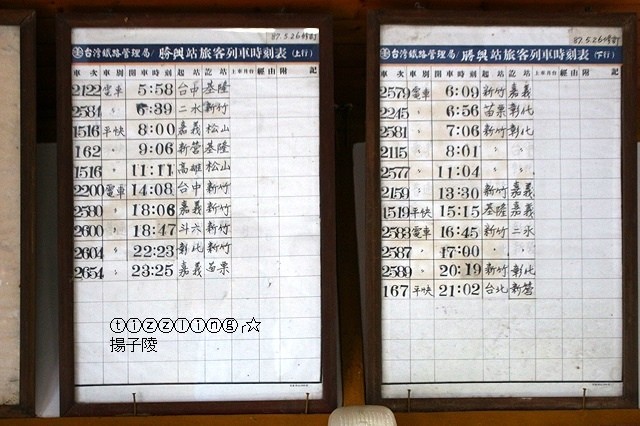 87.5.26修訂
台灣鐵路管理局/勝興站旅客列車時刻表(上行)
車次 車別 開車時刻 起站 訖站 上車月台 經由 附記
2122 電車 5:58 台中 基隆
2581 〃 6:39 二水 新竹
1516 平快 8:00 嘉義 松山
162 〃 9:06 新營 基隆
1516 〃 11:11 高雄 松山
2200 電車 14:08 台中 新竹
2580 〃 18:06 嘉義 新竹
2600 〃 18:47 斗六 新竹
2604 〃 22:23 彰化 新竹
2654 〃 23:25 嘉義 苗栗
ⓣⓘⓩⓩⓛⓘⓝⓖ╭☆
揚子陵
87.5.26修訂
台灣鐵路管理局/勝興站旅客列車時刻表(下行)
車次 車別 開車時刻 起站 訖站 上車月台 經由 附記
2579 電車 6:09 新竹 嘉義
2245 〃 6:56 苗栗 彰化
2581 〃 7:06 新竹 彰化
2115 〃 8:01 〃 〃
2577 〃 11:04 〃 〃
2159 〃 13:30 新竹 嘉義
1519 平快 15:15 基隆 嘉義
2583 電車 16:45 新竹 二水
2587 〃 17:00 〃
2589 〃 20:19 新竹 彰化
167 平快 21:02 台北 新營